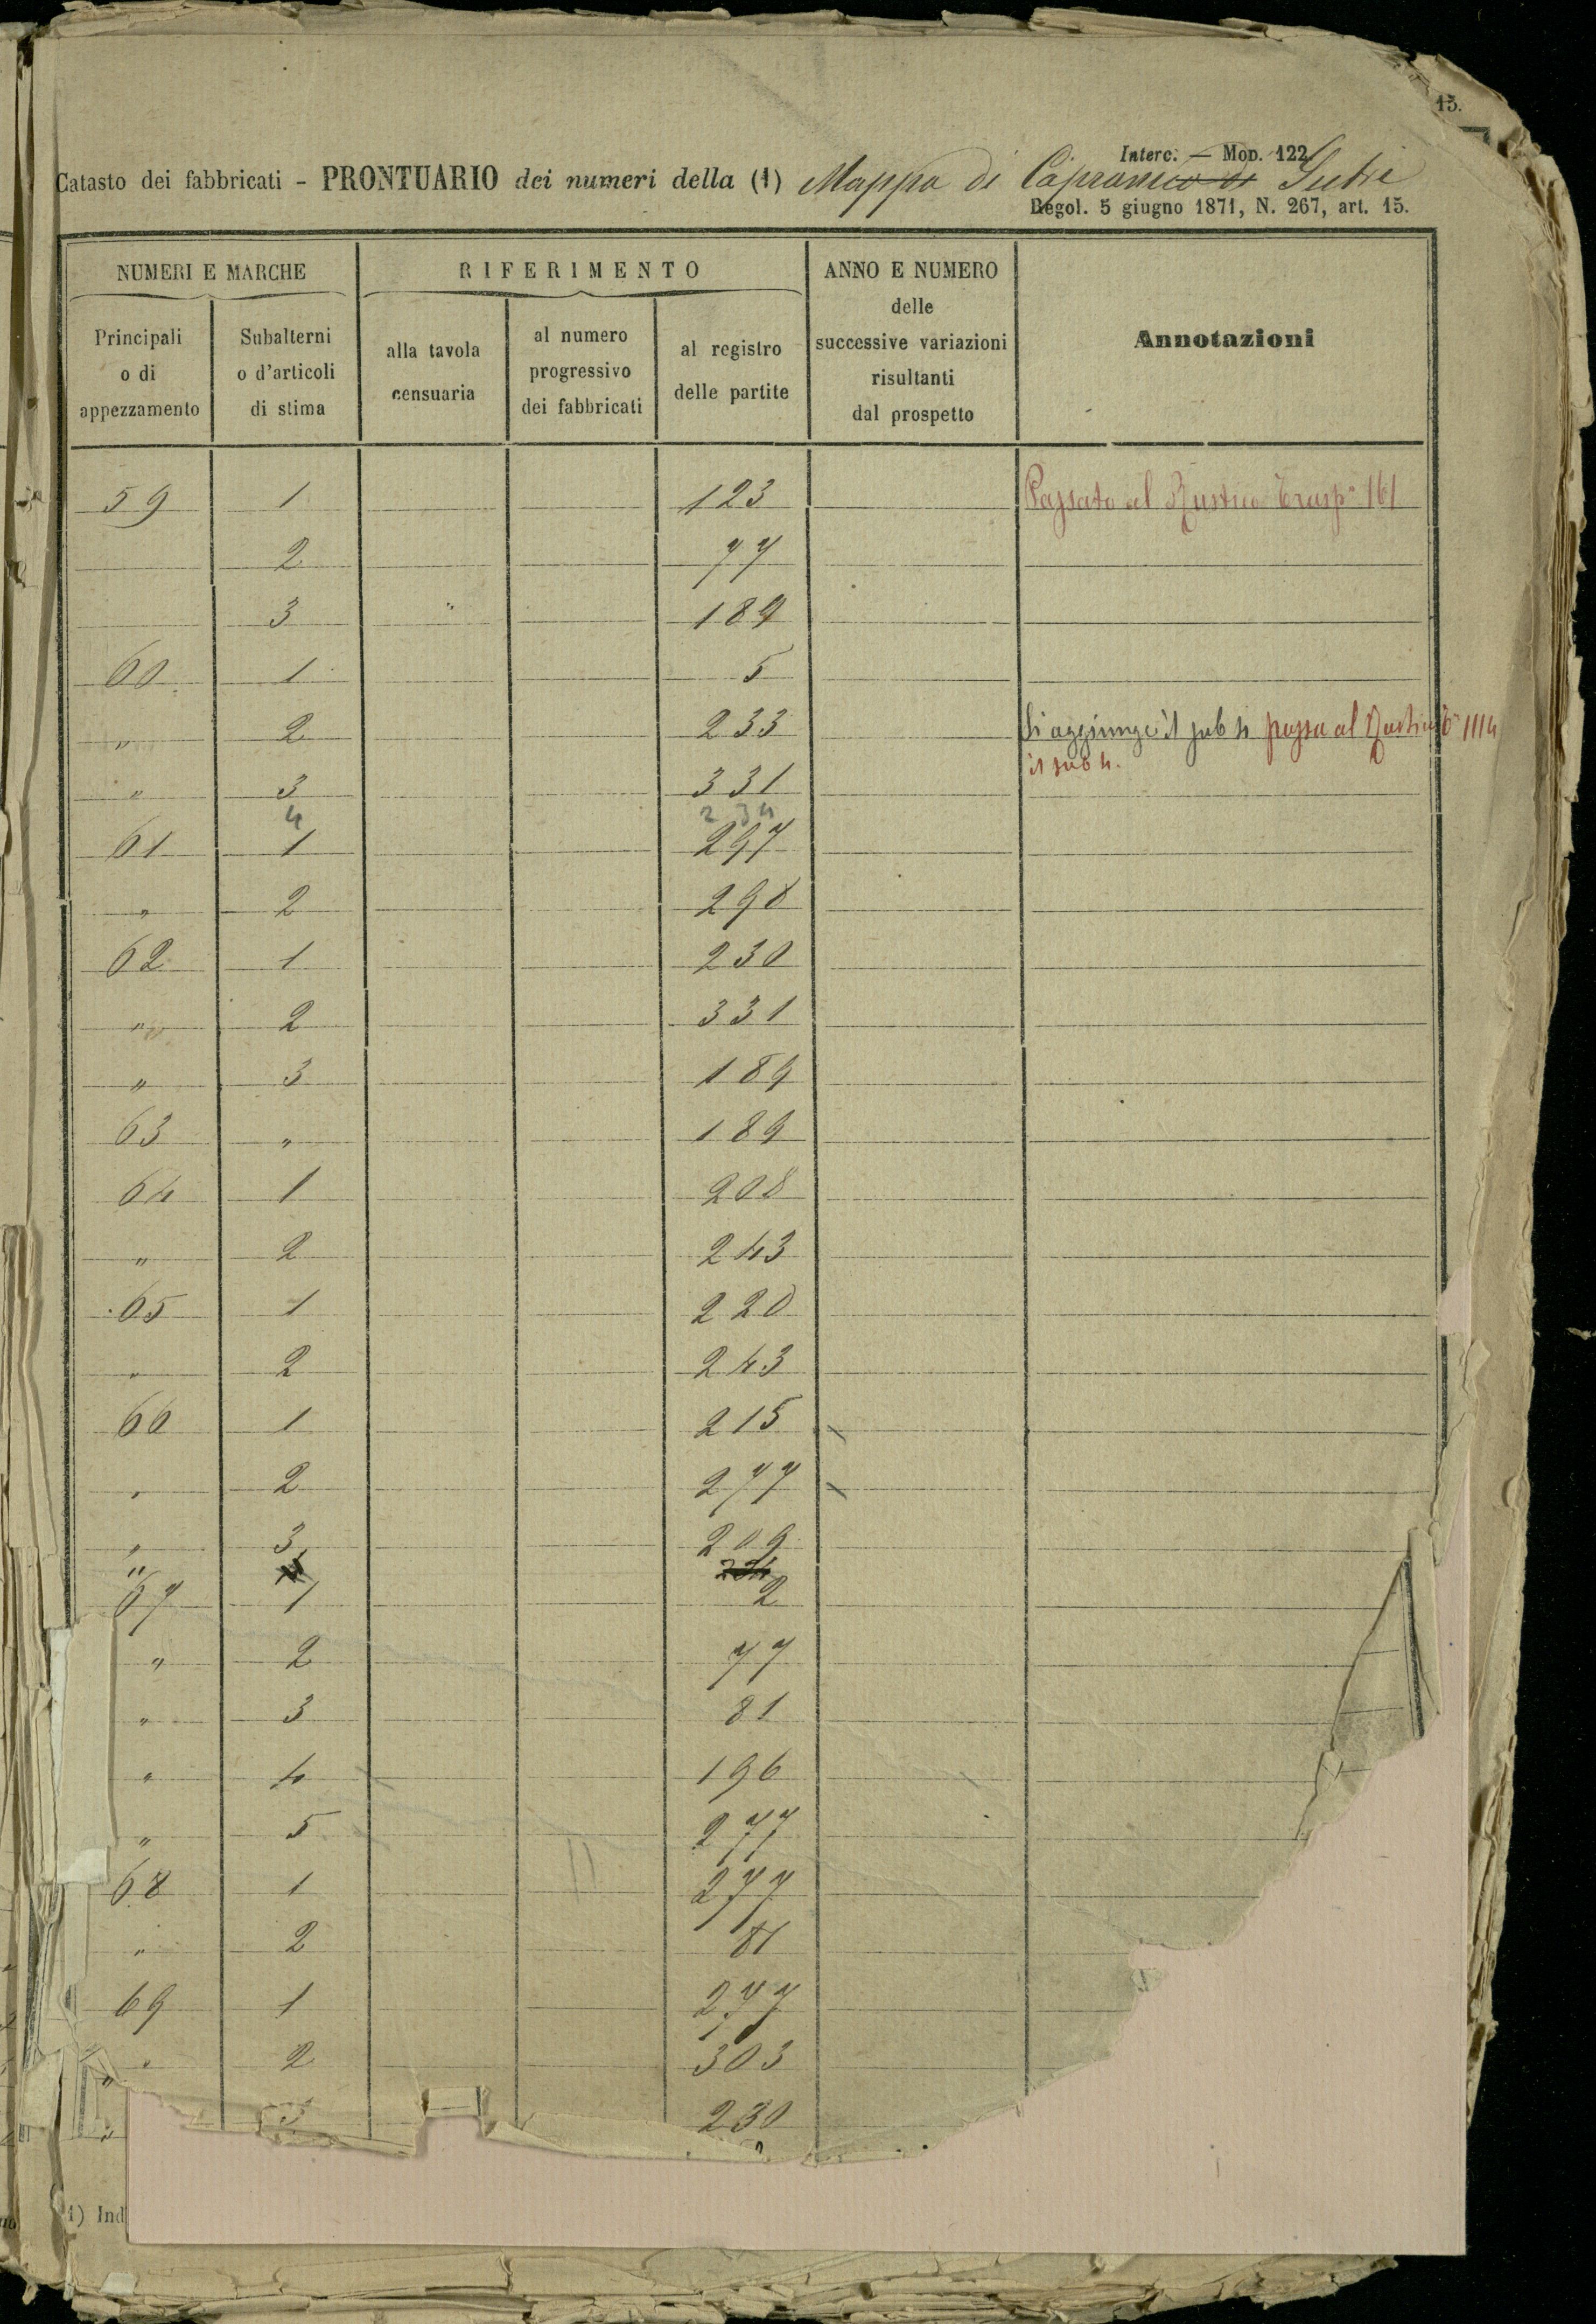 15.
Interc. — Mod. 122
Catasto dei fabbricati - PRONTUARIO dei numeri della (1) Mappa di Capranica di Sutri
Regol. 5 giugno 1871, N. 267, art. 15.
NUMERI E MARCHE RIFERIMENTO ANNO E NUMERO delle successive variazioni risultanti dal prospetto Annotazioni
Principali o di appezzamento Subalterni o d'articoli di stima alla tavola censuaria al numero progressivo dei fabbricati al registro delle partite
59 1 123 Passato al Rustico Trasp° 161
2 77
3 " 189
60 1 5
" 2 233 Si aggiunge il sub 4 passa al Rustico T° 1114
il sub 4.
" 3 331
4 234
61 1 297
" 2 298
62 1 230
" 2 331
" 3 189
63 " 189
64 1 208
" 2 243
65 1 220
" 2 243
66 1 215
" 2 277
" 3 209
" 4 234
67 1 2
" 2 77
" 3 81
" 4 196
" 5 277
68 1 277
" 2 81
69 1 277
" 2 303
" 3 230
"
(1) Ind